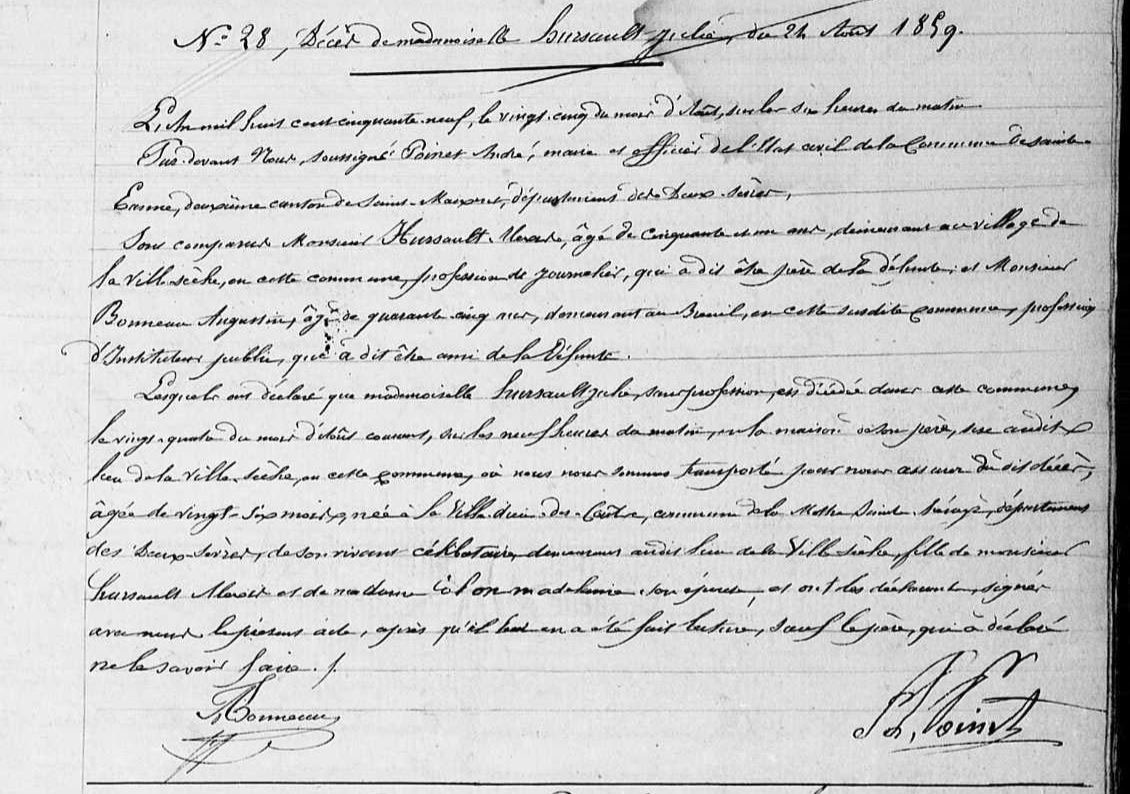 N.o 28, Décès de mademoiselle hursault julie, du 24 Août 1859.
L'An mil huit cent cinquante-neuf, le vingt-cinq du mois d'Août, sur les six heures du matin
Par-devant Nous, soussigné Poinet André, maire et officier de l'Etat civil de la Commune de Sainte-
Eanne, deuxième canton de Saint-Maixent, département des Deux-Sèvres,
Sont comparus Monsieur Hursault âgé de cinquante et un ans, demeurant au village de
la Ville-sèche, en cette commune, profession de journalier, qui a dit être père de la défunte; et Monsieur
Bonneau Augustin, âgé de quarante-cinq ans, demeurant au Breuil, en cette susdite commune, profession
d'Instituteur public, qui a dit être ami de la défunte.
Lesquels ont déclaré que mademoiselle hursault julie, sans profession, est décédée dans cette commune,
le vingt-quatre du mois d'Août courant, sur les neuf heures du matin, en la maison de son père, sise audit
lieu de la Ville-sèche, en cette commune, où nous nous sommes transporté pour nous assurer du dit décès,
âgée de vingt-six mois, née à la Ville-dieu-du- commune de la Mothe Sainte-héraye, département
des Deux-Sèvres, de son vivant célibataire, demeurant audit lieu de la Ville-sèche, fille de monsieur
hursault et de madame madelaine, son épouse, et ont les déclarants, signé
avec nous le présent acte, après qu'il leur en a été fait lecture, sauf le père, qui a déclaré
ne le savoir faire ./.
Bonneau
Poinet